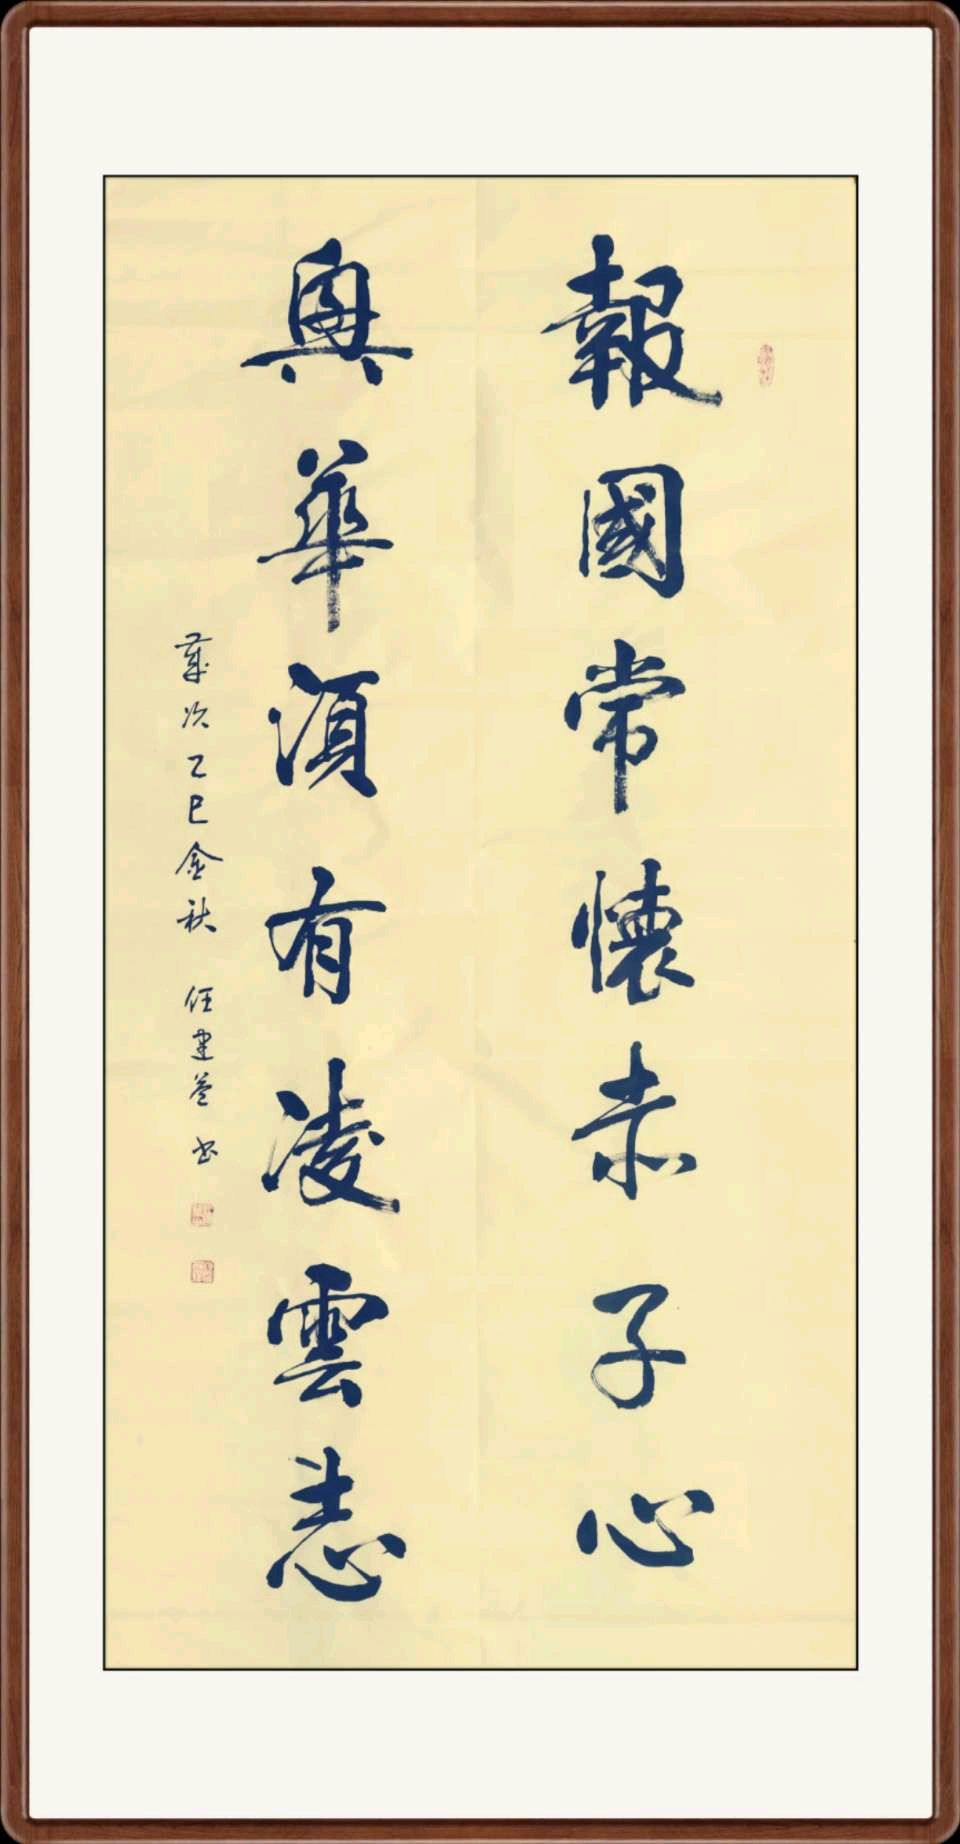 報國常懷赤子心
興華須有凌雲志
歲次乙巳金秋 任建 書